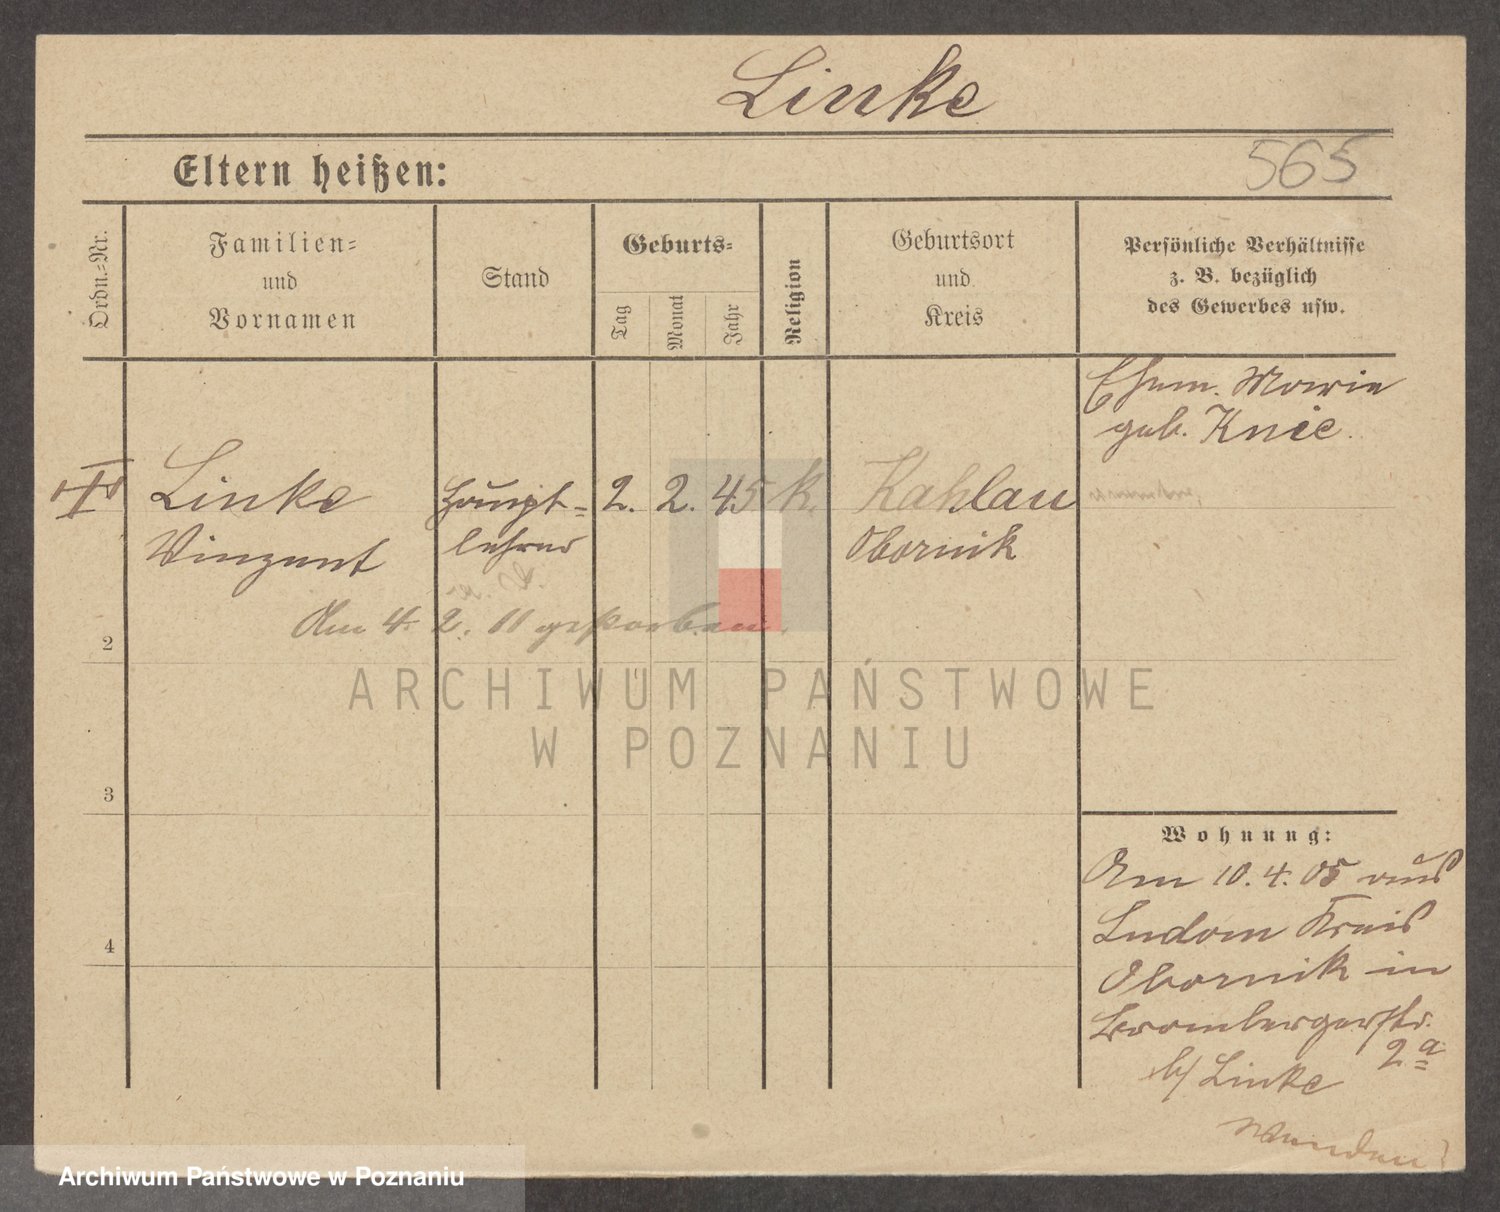 Linke
565
Eltern heißen:
Ordn.-Nr.
Familien-
und
Vornamen
Stand
Geburts-
Tag
Monat
Jahr
Religion
Geburtsort
und
Kreis
Persönliche Verhältnisse
z. B. bezüglich
des Gewerbes usw.
Ehem. Marie
geb. Knie.
Linke
Vinzent
Haupt-
lehrer
a. D.
2. 2. 45 k.
Kahlau
Obornik
Am 4. 2. 11 gestorben.
2
3
4
ARCHIWUM PAŃSTWOWE
W POZNANIU
Wohnung:
Am 10. 4. 05 aus
Ludom Kreis
Obornik in
Brombergerstr.
2a
b/ Linke
wenden
Archiwum Państwowe w Poznaniu